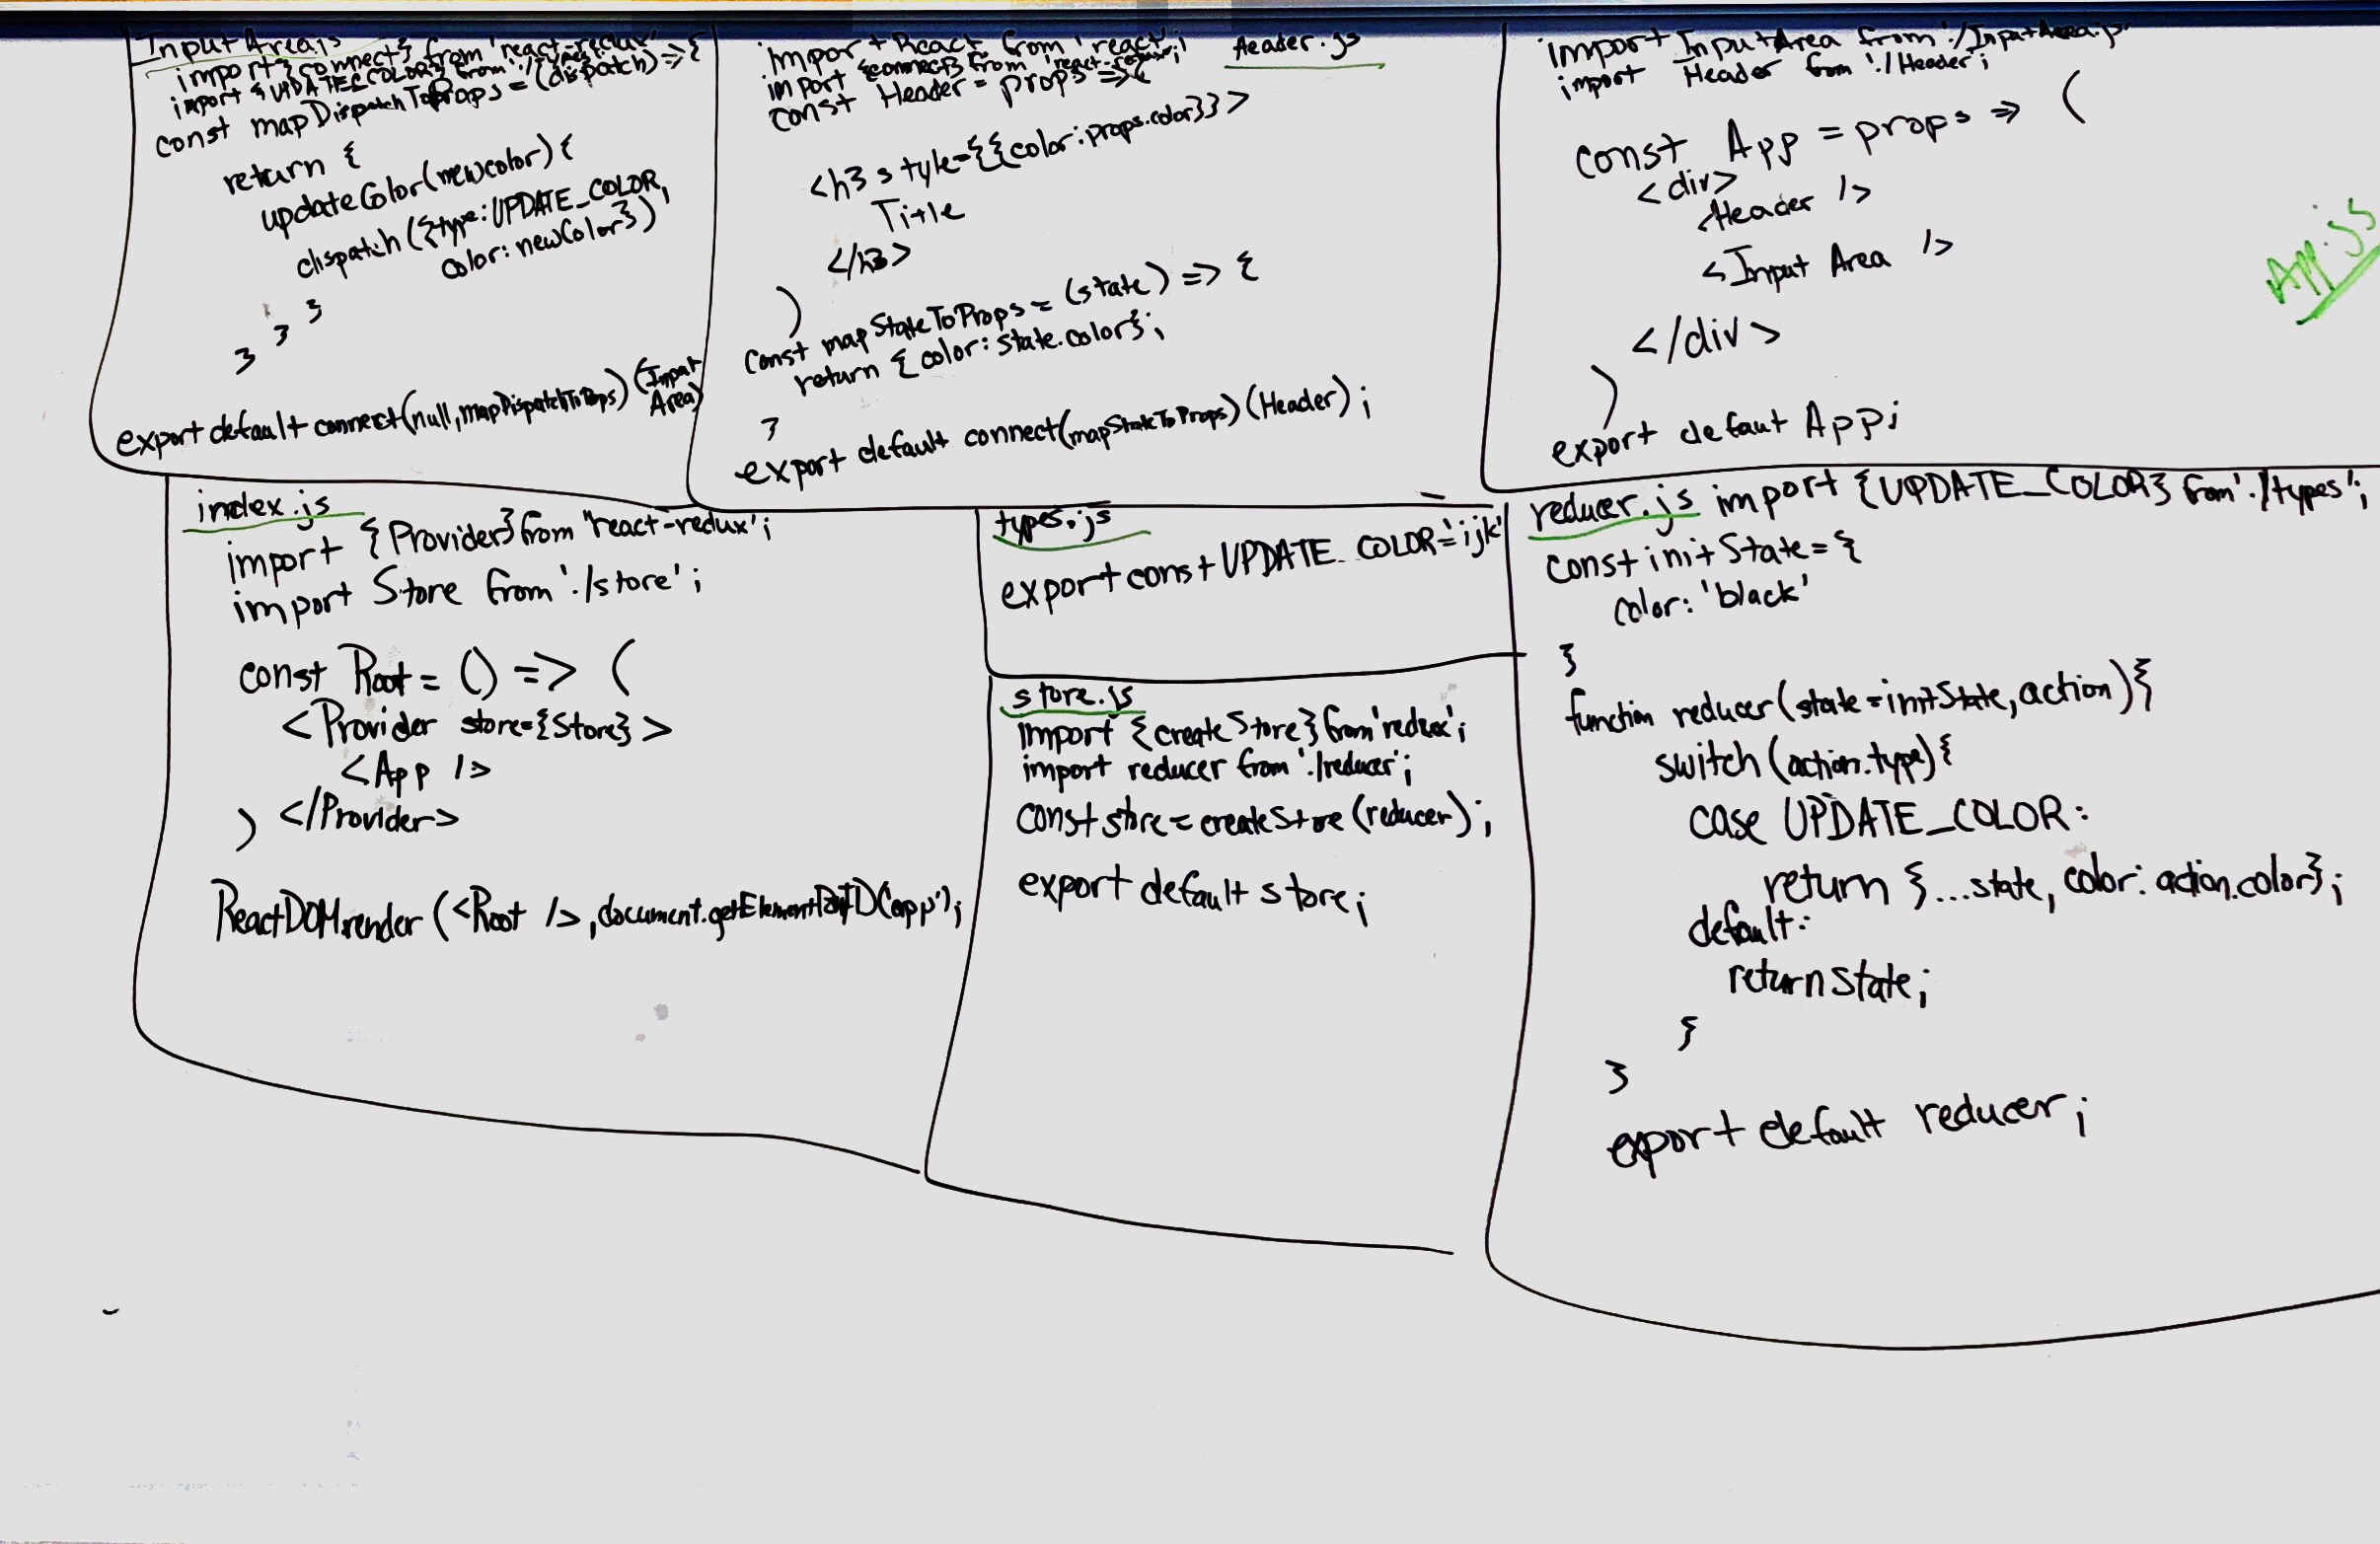 InputArea.js
import {connect} from 'react-redux'
import {UPDATE_COLOR} from './types';
const mapDispatchToProps = (dispatch) => {
return {
updateColor(newcolor) {
dispatch({type: UPDATE_COLOR,
color: newColor})
}
}
}
export default connect(null, mapDispatchToProps)(Input
Area)
Header.js
import React from 'react';
import {connect} from 'react-redux';
const Header = props => (
<h3 style={{color: props.color}}>
Title
</h3>
)
const mapStateToProps = (state) => {
return {color: state.color};
}
export default connect(mapStateToProps)(Header);
App.js
import InputArea from './InputArea.js'
import Header from './Header';
const App = props => (
<div>
<Header />
<Input Area />
</div>
)
export defaut App;
index.js
import {Provider} from 'react-redux';
import Store from './store';
const Root = () => (
<Provider store={Store}>
<App />
</Provider>
)
ReactDOM.render(<Root />, document.getElementByID('app');
types.js
export const UPDATE_COLOR='ijk'
store.js
import {createStore} from 'redux';
import reducer from './reducer';
const store = createStore(reducer);
export default store;
reducer.js import {UPDATE_COLOR} from './types';
const initState = {
color: 'black'
}
function reducer(state = initState, action) {
switch (action.type) {
case UPDATE_COLOR:
return {...state, color: action.color};
default:
return state;
}
}
export default reducer;